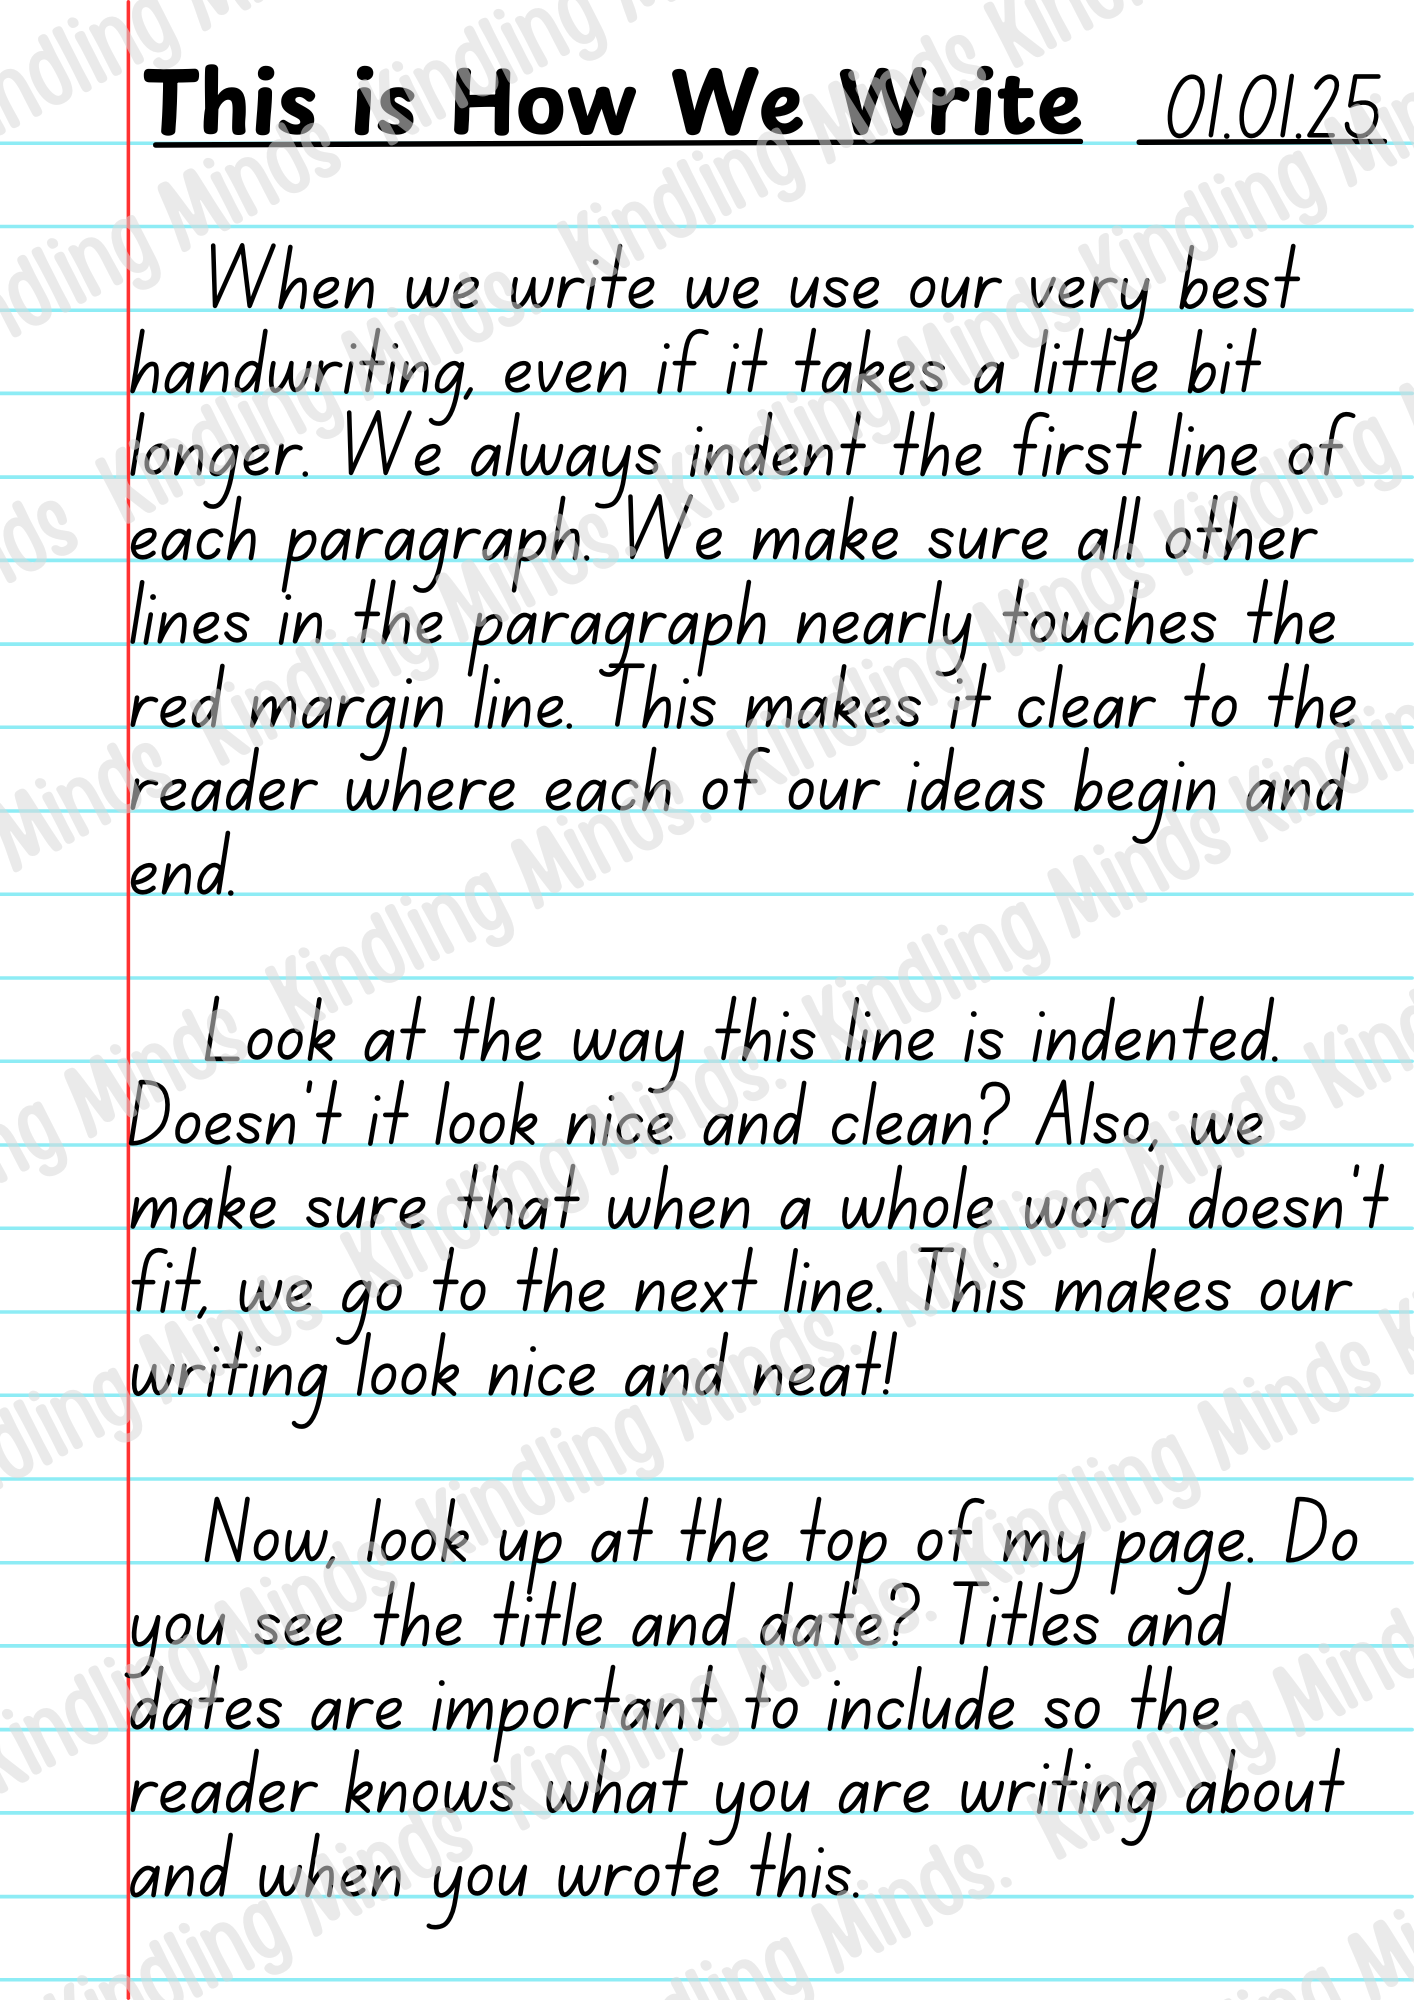 This is How We Write 01.01.25
When we write we use our very best
handwriting, even if it takes a little bit
longer. We always indent the first line of
each paragraph. We make sure all other
lines in the paragraph nearly touches the
red margin line. This makes it clear to the
reader where each of our ideas begin and
end.
Look at the way this line is indented.
Doesn't it look nice and clean? Also, we
make sure that when a whole word doesn't
fit, we go to the next line. This makes our
writing look nice and neat!
Now, look up at the top of my page. Do
you see the title and date? Titles and
dates are important to include so the
reader knows what you are writing about
and when you wrote this.
Kindling Minds.